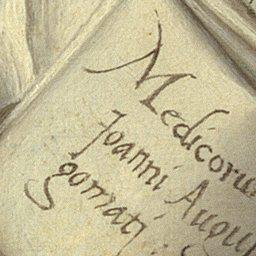 Medicoru
Joanni Augu
gornatj.